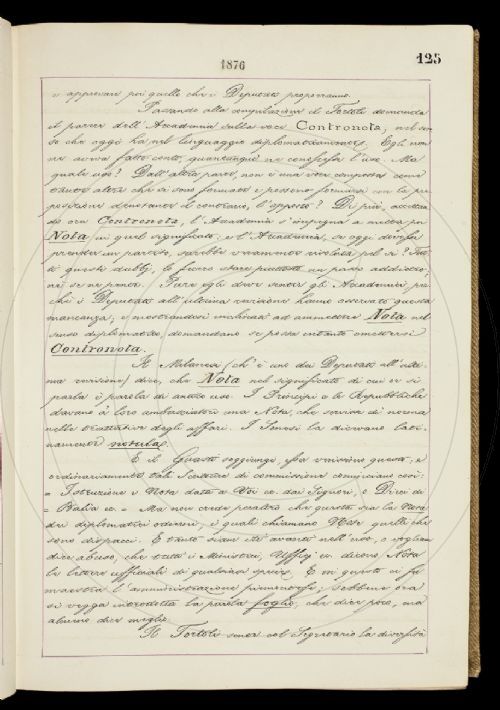 1876
125
e approvare poi quello che i Deputati proporranno.
Passando alla compilazione il Tortoli domanda
il parere dell'Accademia sulla voce Contronota, nel sen-
so che oggi ha nel linguaggio diplomatico. Egli non
ne aveva fatto conto, quantunque ne confessi l'uso. Ma
quale uso? Dall'altra parte, non è una voce composta come
tante altre che si sono formate e possono formarsi con la pre-
posizione denotante il contrario, l'opposto? Di più, accettan-
do ora Contronota, l'Accademia s'impegna a metter poi
Nota in quel significato: e l'Accademia, se oggi dovesse
prendere un partito, sarebbe veramente risoluta pel sì? Tut-
ti questi dubbj lo fecero stare piuttosto un passo addietro;
nè se ne pente. Pure egli deve sentire gli Accademici per-
chè i Deputati all'ultima revisione hanno osservato questa
mancanza; e mostrandosi inclinati ad ammettere Nota nel
senso diplomatico, domandano se possa intanto omettersi
Contronota.
Il Milanesi (ch'è uno dei Deputati all'ulti-
ma revisione) dice, che Nota nel significato di cui or si
parla è parola di antico uso. I Principi e le Repubbliche
davano a' loro ambasciatori una Nota, che serviva di norma
nelle trattative degli affari. I Senesi la dicevano lati-
namente notula.
E il Guasti soggiunge, esser verissimo questo, e
ordinariamente tali Scritture di commissioni cominciare così:
= Istruzione e Nota data a Voi ec. dai Signori, o Dieci di
= Balìa ec. = Ma non crede peraltro che questa sia la Nota
dei diplomatici odierni, i quali chiamano Note quelli che
sono dispacci. E tanto siam ito avanti nell'uso, o vogliam
dire abuso, che tutti i Ministeri, Uffizj ec. dicono Nota
la lettera ufficiale di qualsiasi specie. E in questo ci fu
maestra l'amministrazione piemontese; sebbene ora
si vegga introdotta la parola foglio, che dice poco, ma
almeno dice meglio.
Il Tortoli sente col Segretario la diversità